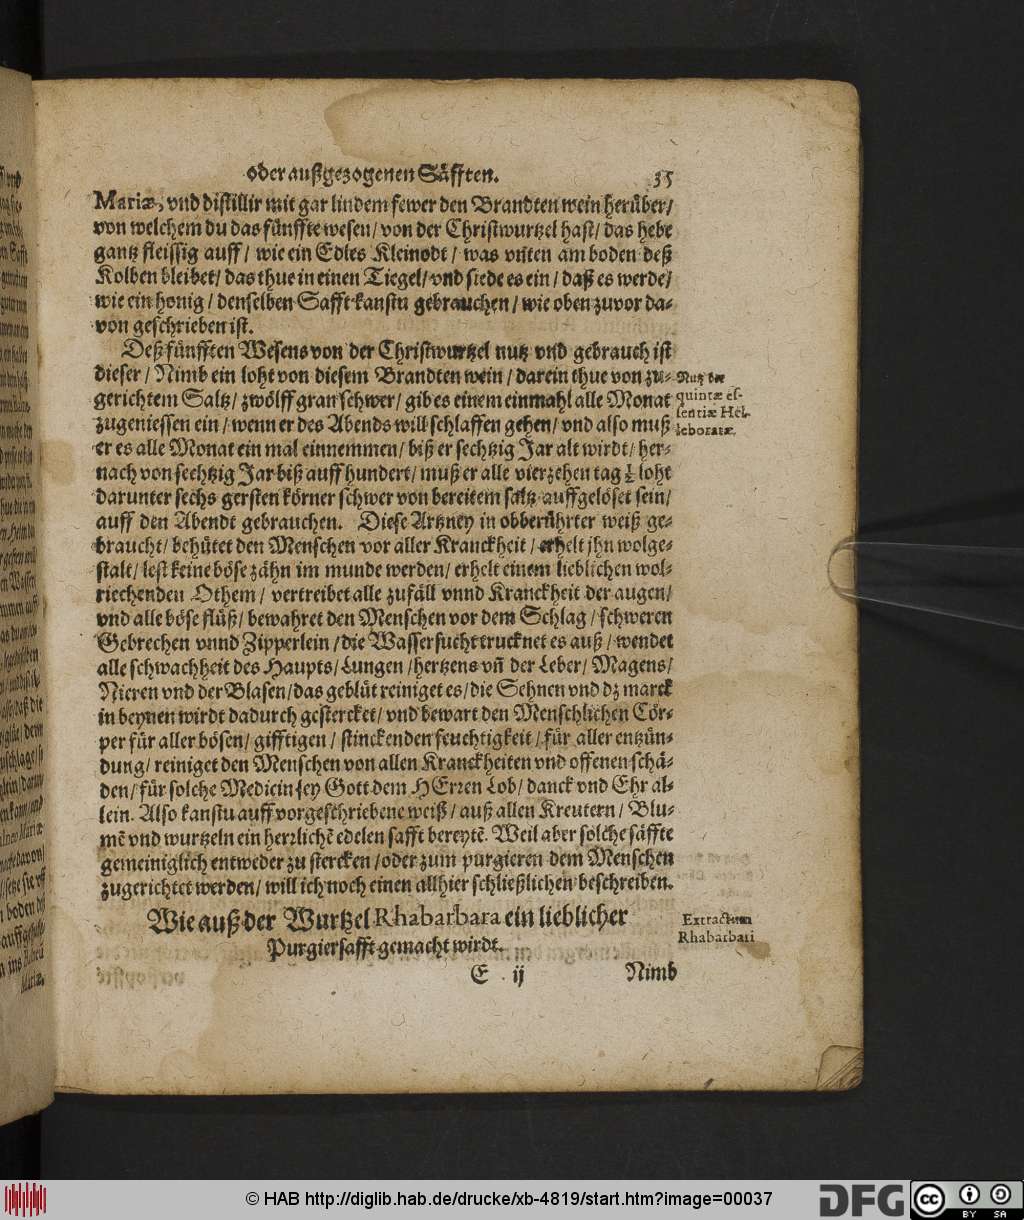 oder außgezogenen Säfften. 35
Mariæ, vnd distillir mit gar lindem fewer den Brandten wein herüber/
von welchem du das fünffte wesen/ von der Christwurtzel hast/ das hebe
gantz fleissig auff/ wie ein Edles Kleinodt/ was vnten am boden deß
Kolben bleibet/ das thue in einen Tiegel/ vnd siede es ein/ daß es werde/
wie ein honig/ denselben Safft kanstu gebrauchen/ wie oben zuvor da-
von geschrieben ist.
Deß fünfften Wesens von der Christwurtzel nutz vnd gebrauch ist
dieser/ Nimb ein loht von diesem Brandten wein/ darein thue von zu-
gerichtem Saltz/ zwölff gran schwer/ gib es einem einmahl alle Monat
zugeniessen ein/ wenn er des Abends will schlaffen gehen/ vnd also muß
er es alle Monat ein mal einnemmen/ biß er sechtzig Jar alt wirdt/ her-
nach von sechtzig Jar biß auff hundert/ muß er alle vierzehen tag ½ loht
darunter sechs gersten körner schwer von bereitem saltz auffgelöset sein/
auff den Abendt gebrauchen. Diese Artzney in obberührter weiß ge-
braucht/ behütet den Menschen vor aller Kranckheit/ erhelt jhn wolge-
stalt/ lest keine böse zähn im munde werden/ erhelt einem lieblichen wol-
riechenden Othem/ vertreibet alle zufäll vnnd Kranckheit der augen/
vnd alle böse flüß/ bewahret den Menschen vor dem Schlag/ schweren
Gebrechen vnnd Zipperlein/ die Wassersucht trucknet es auß/ wendet
alle schwachheit des Haupts/ Lungen/ hertzens vñ der Leber/ Magens/
Nieren vnd der Blasen/ das geblüt reiniget es/ die Sehnen vnd dz marck
in beynen wirdt dadurch gestercket/ vnd bewart den Menschlichen Cör-
per für aller bösen/ gifftigen/ stinckenden feuchtigkeit/ für aller entzün-
dung/ reiniget den Menschen von allen Kranckheiten vnd offenen schä-
den/ für solche Medicin sey Gott dem HErren Lob/ danck vnd Ehr al-
lein. Also kanstu auff vorgeschriebene weiß/ auß allen Kreutern/ Blu-
mẽ vnd wurtzeln ein herrlichẽ edelen safft bereytẽ. Weil aber solche säffte
gemeiniglich entweder zu stercken/ oder zum purgieren dem Menschen
zugerichtet werden/ will ich noch einen allhier schließlichen beschreiben.
Nutz der
quintæ es-
sentiæ Hel-
leboratæ.
Wie auß der Wurtzel Rhabarbara ein lieblicher
Purgiersafft gemacht wirdt.
Extractum
Rhabarbari
E ij Nimb
Mariæ,
© HAB http://diglib.hab.de/drucke/xb-4819/start.htm?image=00037
DFG
cc
BY SA